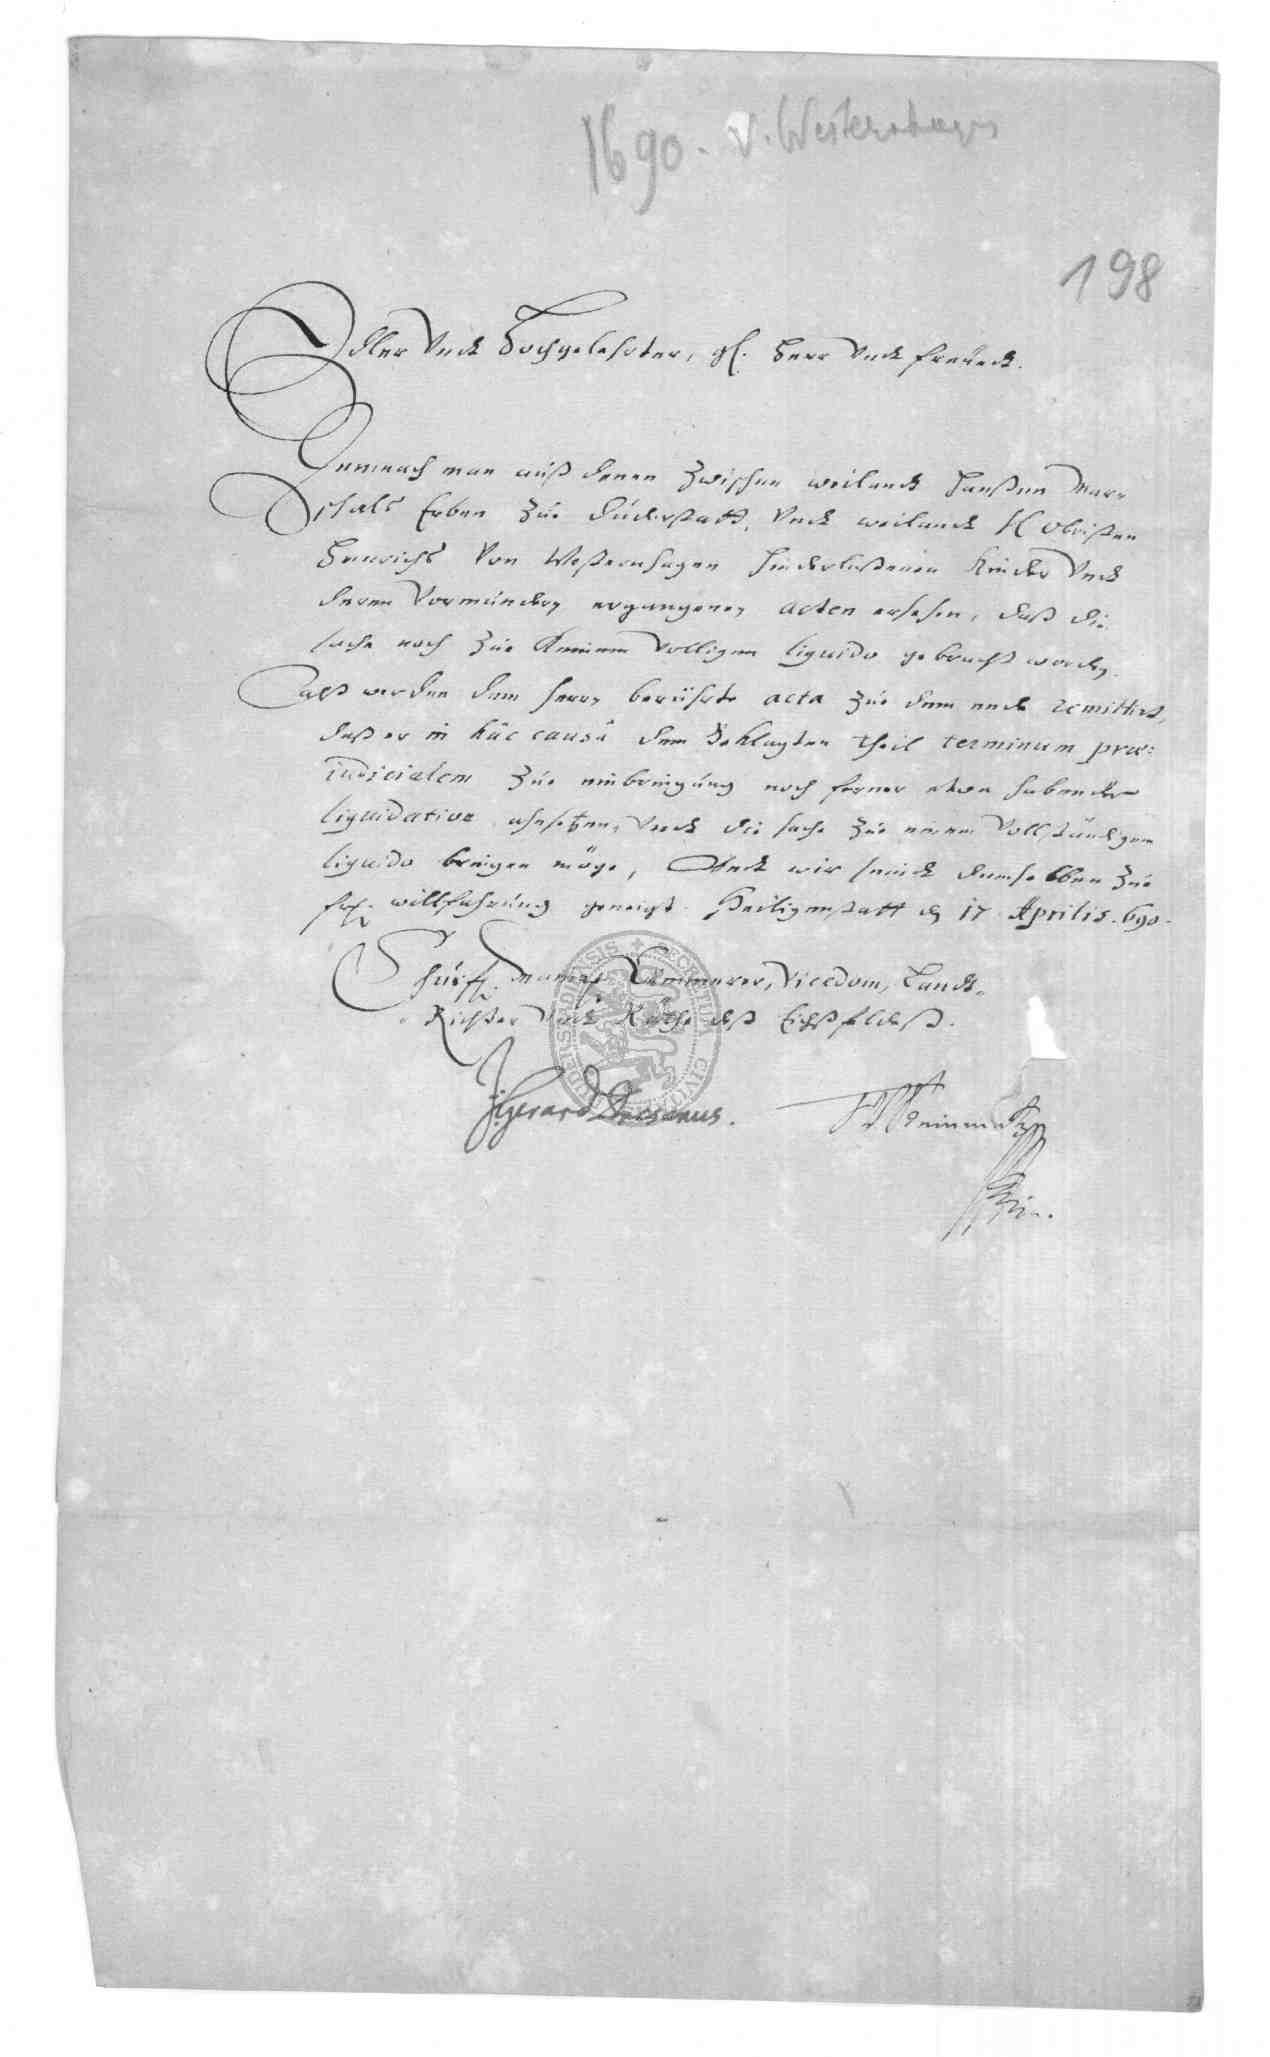 1690. v. Westernhagen
198
Edler Undt Hochgelehrter, gl. Herr Undt freundt.
Demnach man auß denen zwischen weilandt Hanßen Mar-
schals Erben zue Duderstatt, Undt weilandt H Obristen
Henrichs Von Westernhagen hinderlaßenen Kinder Undt
deren Vormünder ergangenen acten ersehen, daß die
sache noch zue keinem Volligen liquido gebracht worden.
Alß werden dem herrn berührte acta zue dem ende remittirt,
daß er in hac causa dem Beklagten theil terminum præ-
iudicialem zue einbringung noch ferner etwa habender
liquidation ahnsetzen, Undt die sache zue einem Vollständigen
liquido bringen möge, Undt wir seindt demselben zue
willfahrung geneigt. Heiligenstatt d 17 Aprilis. 690.
Churf. Maintz Cammerer, Vicedom, Landt-
Richter Undt Räthe deß Eichßfeldeß.
Gerard
SECRETUM CIVIUM